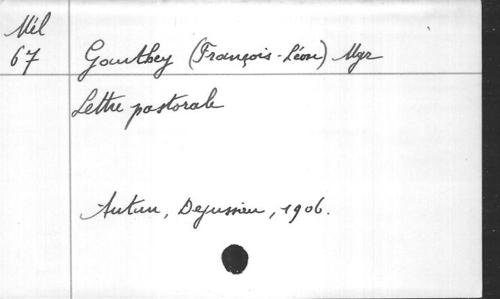 Mél
67
Gauthey (François-Léon) Mgr
Lettre pastorale
Autun, Dejussieu, 1906.